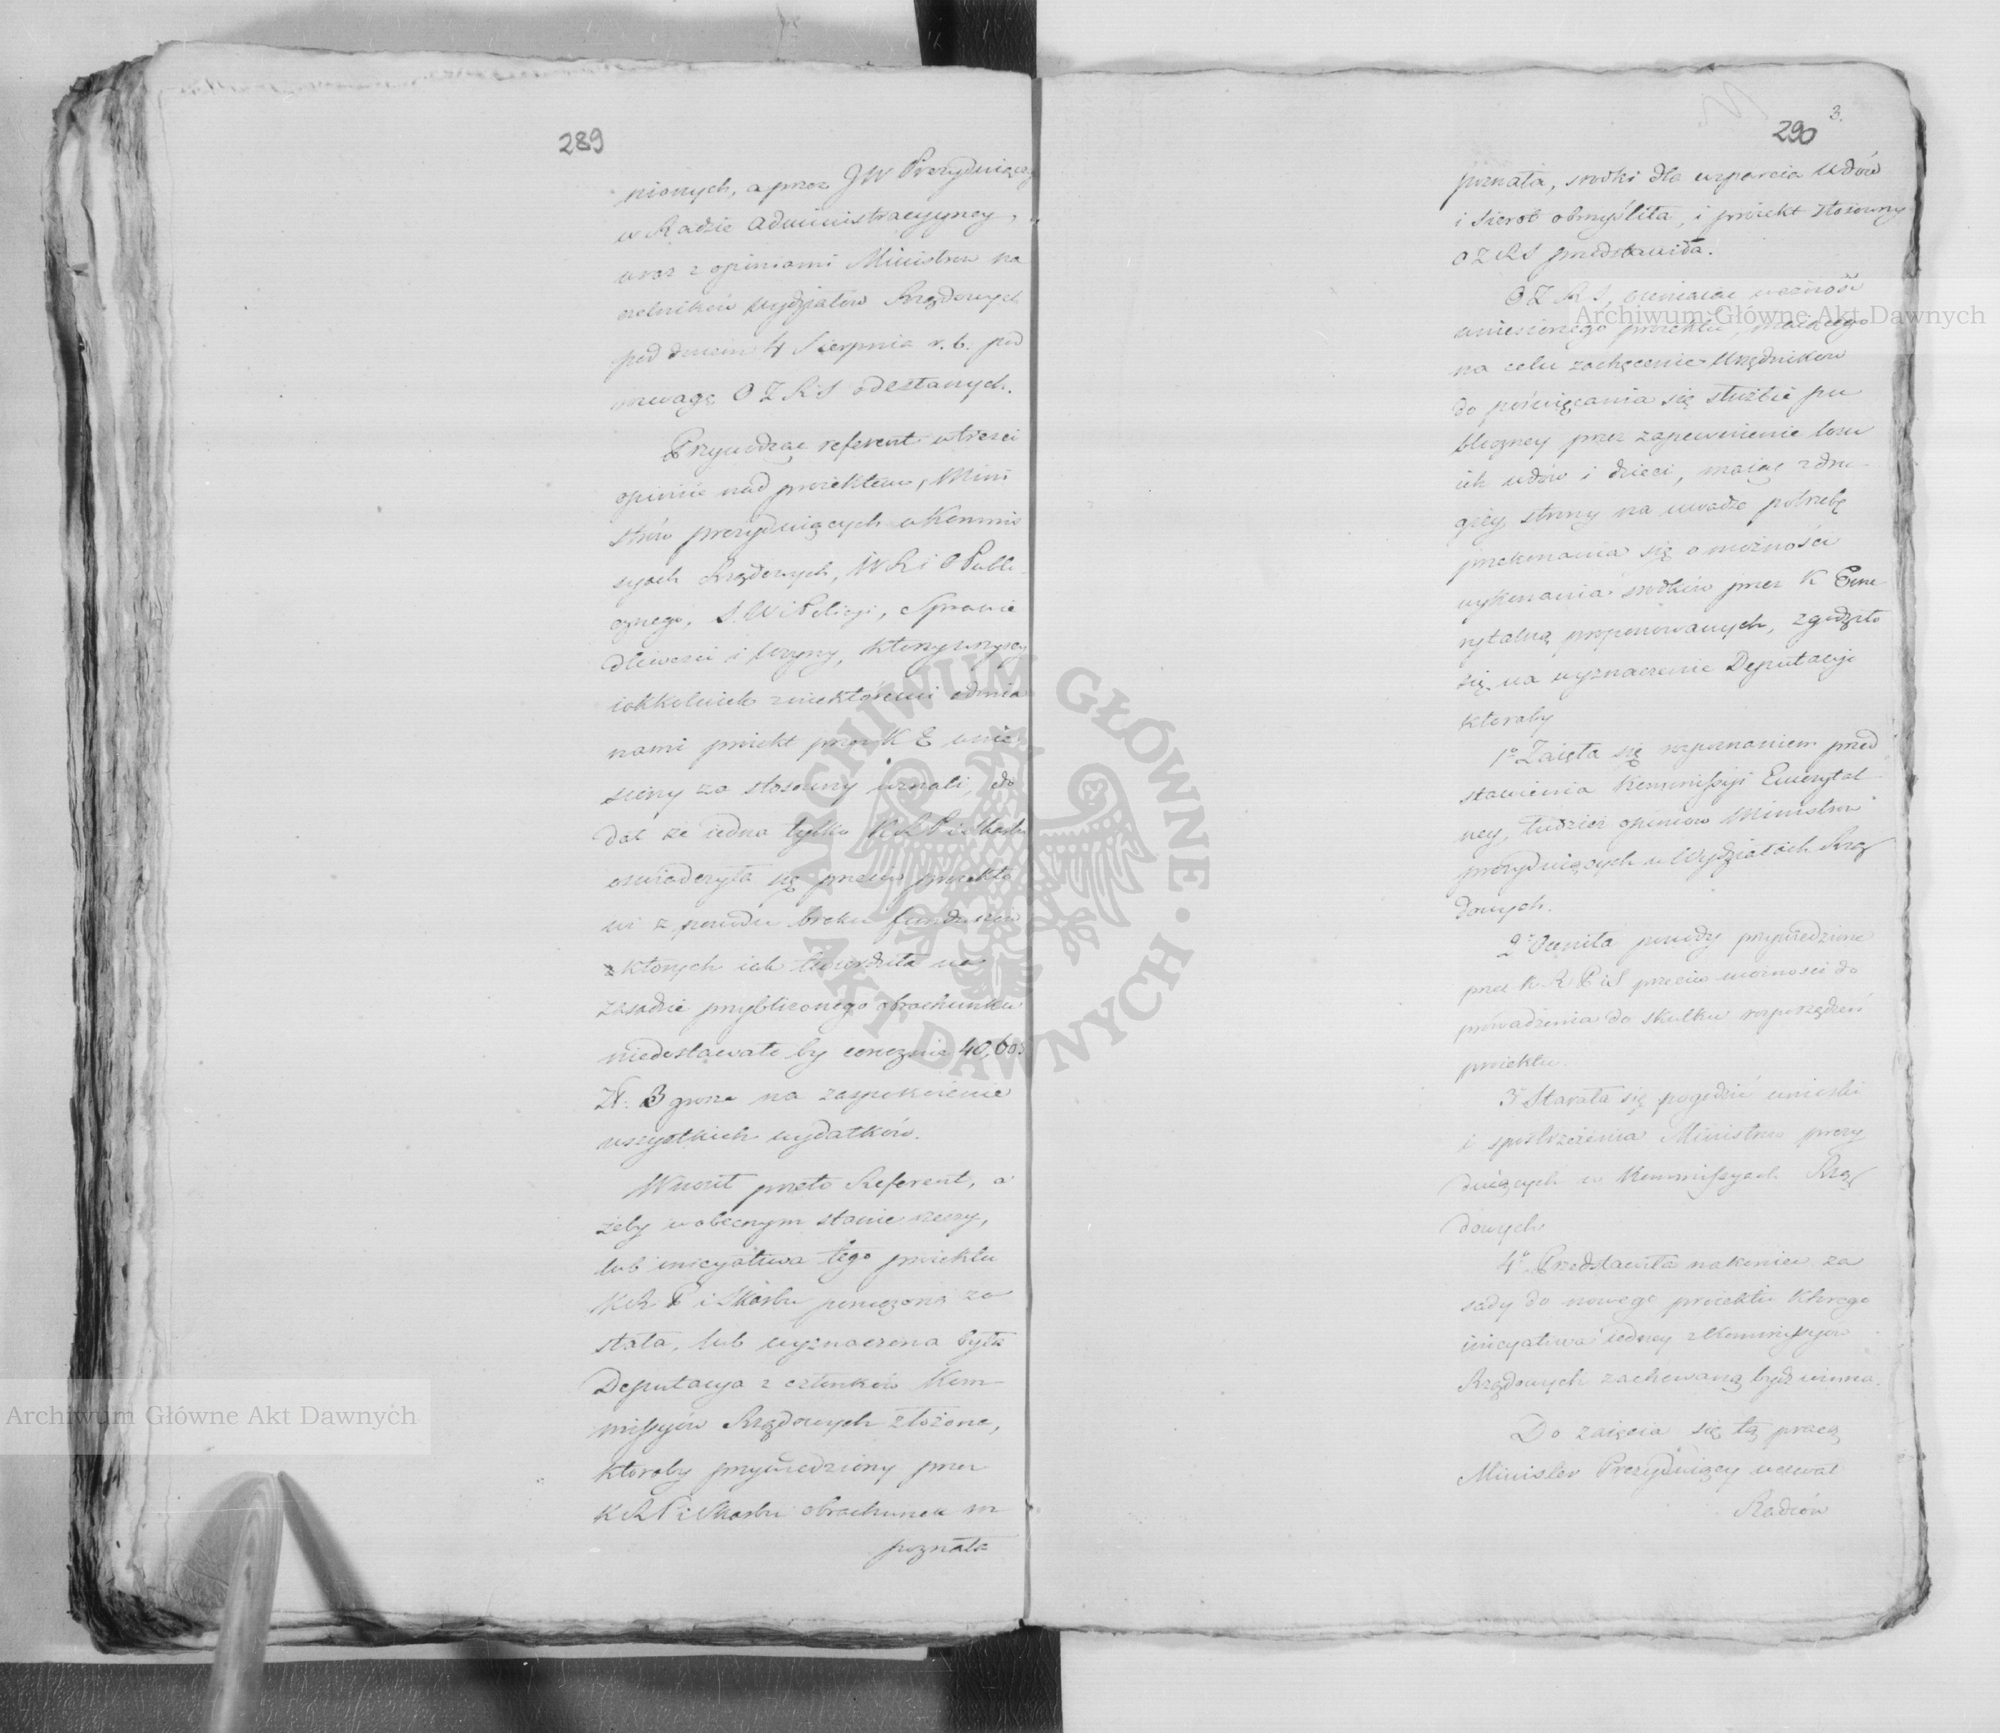 289
nionych, a przez JW Prezyduiący
w Radzie Administracyyney,
wraz z opiniami Ministrów na
czelników Wydziałów Rządowych
pod dniem 4 Sierpnia r. b. pod
rozwagę O Z R S odesłanych.
Przywodząc referent w treści
opinie nad proiektem, Mini
strów prezyduiących w Kommis
syach Rządowych, W R i O Publi
cznego, S. W i Policyi, Sprawie
dliwości i Woyny, którzy wszyscy
iakkolwiek z niektóremi odmia
nami proiekt przez K E wnie
siony za stosowny uznali, do
dał że iedna tylko K R P i Skarbu
oświadczyła się przeciw proiekto
wi z powodu braku funduszów
z których iak twierdziła na
zasadzie przybliżonego obrachunku
niedostawało by corocznie 40,603
Zł. 3 grosze na zaspokoienie
wszystkich wydatków.
Wnosił przeto Referent, a
żeby w obecnym stanie rzeczy,
lub inicyatywa tego proiektu
K R P i Skarbu poruczoną zo
stała, lub wyznaczona była
Deputacya z członków Kom
missyów Rządowych złożona,
któraby przywiedziony przez
K R P i Skarbu obrachunek roz
poznała
3.
290
poznała, środki dla wsparcia wdów
i sierot obmyśliła, i proiekt stosowny
O Z R S przedstawiła.
O Z R S, oceniaiąc ważność
wniesionego proiektu, maiącego
na celu zachęcenie Urzędników
do poświęcania się służbie pu
bliczney przez zapewnienie losu
ich wdów i dzieci, maiąc z dru
giey strony na uwadze potrzebę
przekonania się o możności
wykonania środków przez K Eme
rytalną proponowanych, zgodziło
się na wyznaczenie Deputacyi
któraby
1° Zaięła się rozpoznaniem przed
stawienia Kommissyi Emerytal
ney, tudzież opiniow Ministrów
prezyduiących w Wydziałach Rzą
dowych.
2° Oceniła powody przywiedzione
przez K R P i S przeciw możności do
prowadzenia do skutku rozporządzeń
proiektu.
3° Starała się pogodzić wnioski
i spostrzeżenia Ministrów prezy
duiących w Kommissyach Rzą
dowych
4° Przedstawiła nakoniec za
sady do nowego proiektu którego
inicyatywa iedney z Kommissyów
Rządowych zachowaną bydź winna.
Do zaięcia się tą pracą
Minister Prezyduiący wezwał
Radców
Archiwum Główne Akt Dawnych
Archiwum Główne Akt Dawnych
ARCHIWUM GŁÓWNE · AKT DAWNYCH ·